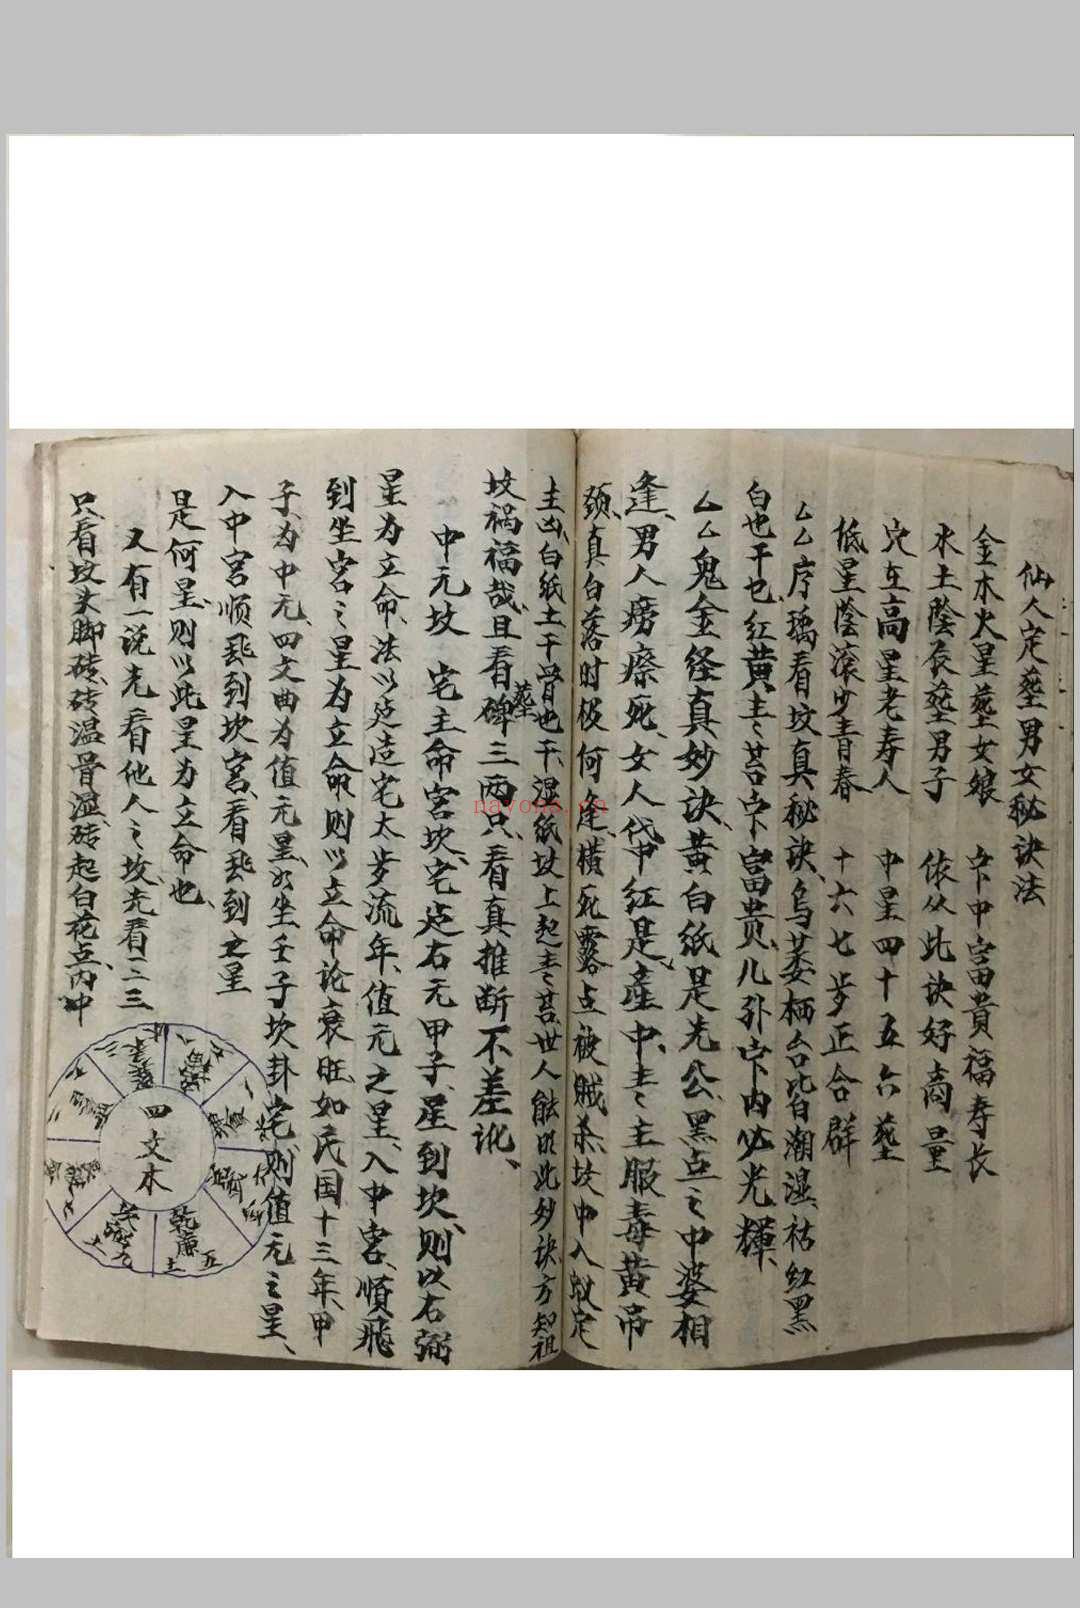 仙人定墓男女秘诀法
金木火星墓女娘 中富貴福寿长
水土陰辰墓男子 依从此诀好商量
穴在高星老寿人 中星四十五六墓
低星陰滚少青春 十六七步正合群
厶厶序瑀看坟真秘诀、乌萎栖台比白潮湿、枯红黑
白也干也、红黄主主莒富贵、儿孙内必光輝、
厶厶鬼金经真妙诀、黄白纸是先公、黑点之中婆相
逢、男人痨瘵死、女人代中红是、產中、主主主服毒黄吊
颈、真白落时极何逢、橫死露点被贼杀、坟中入蚁定
主凶、白纸土干骨也干、湿纸坟上起主主莒世人能明此妙诀方知祖
坟祸福哉、且看碑墓三两只、看真推断不差讹、
中元坟 宅主命宫坎、宅造右元甲子、星到坎、则以右弼
星为立命、法以造造宅太岁流年、值元之星、入中宫、順飛
到坐宫之星为立命则以立命论衰旺、如民国十三年、甲
子、为中元、四文曲为值元星、如坐壬子坎卦宅、则值元之星、
入中宫顺飛到坎宫、看飛到之星
是何星、则以此星为立命也、
又有一说先看他人之坟、先看一二三
只看坟头脚砖、砖温骨湿、砖起白花点、内中
四文木
乾廉
五
土